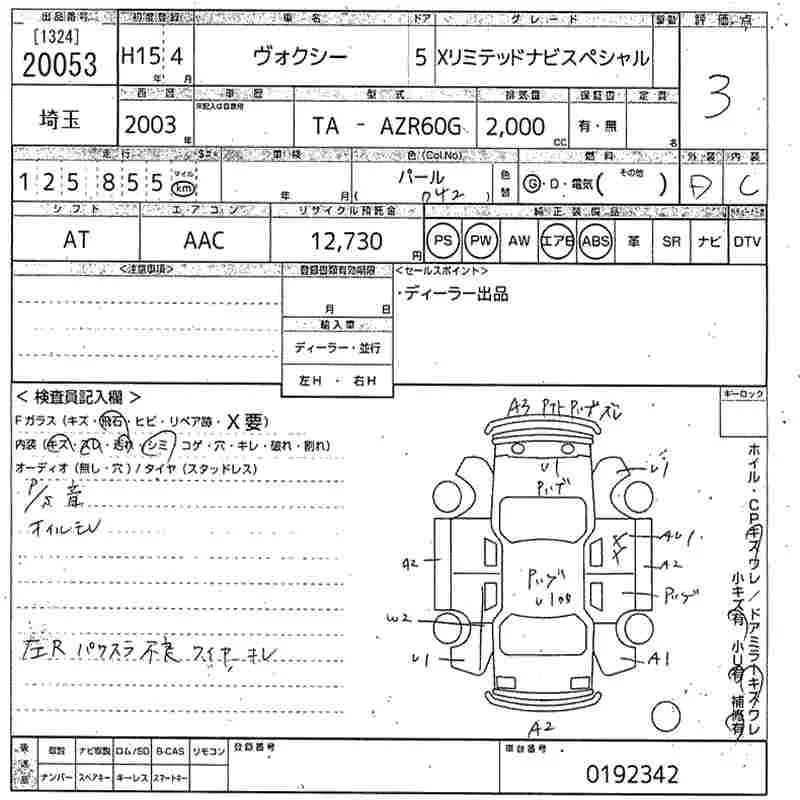 出品番号 初度登録 車名 ドア グレード 評価点
[1324]
20053 H15年 4月 ヴォクシー 5 Xリミテッドナビスペシャル 3
西暦 車歴 型式 排気量 保証書 定員
埼玉 2003年 未記入は自家用 TA - AZR60G 2,000cc 有・無 名
走行 車検 色(Col.No) 燃料 外装 内装
125855 マイル km 年 月 パール (042) 色替 G・D・電気( その他 ) D C
シフト エアコン リサイクル預託金 純正装備品
AT AAC 12,730円 PS PW AW エアB ABS 革 SR ナビ DTV
<注意事項> 登録書類有効期限 <セールスポイント>
月 日 ・ディーラー出品
輸入車
ディーラー・並行
左H ・ 右H
< 検査員記入欄 > キーロック
Fガラス (キズ・飛石・ヒビ・リペア跡・X要)
内装 (キズ・スレ・汚れ・シミ・コゲ・穴・キレ・破れ・割れ)
オーディオ (無し・穴) / タイヤ (スタッドレス)
P/S 音
オイルモレ
左R パワスラ 不良 ワイヤーキレ
A3
U1
U1
AU1
A2
A2
W2
U1
A1
A2
ホイル・CPキズワレ/ドアミラーキズワレ
小キズ有 小U有 補修有
後送品 取説 ナビ取説 ロム/SD B-CAS リモコン 登録番号 車台番号
ナンバー スペアキー キーレス スマートキー 0192342